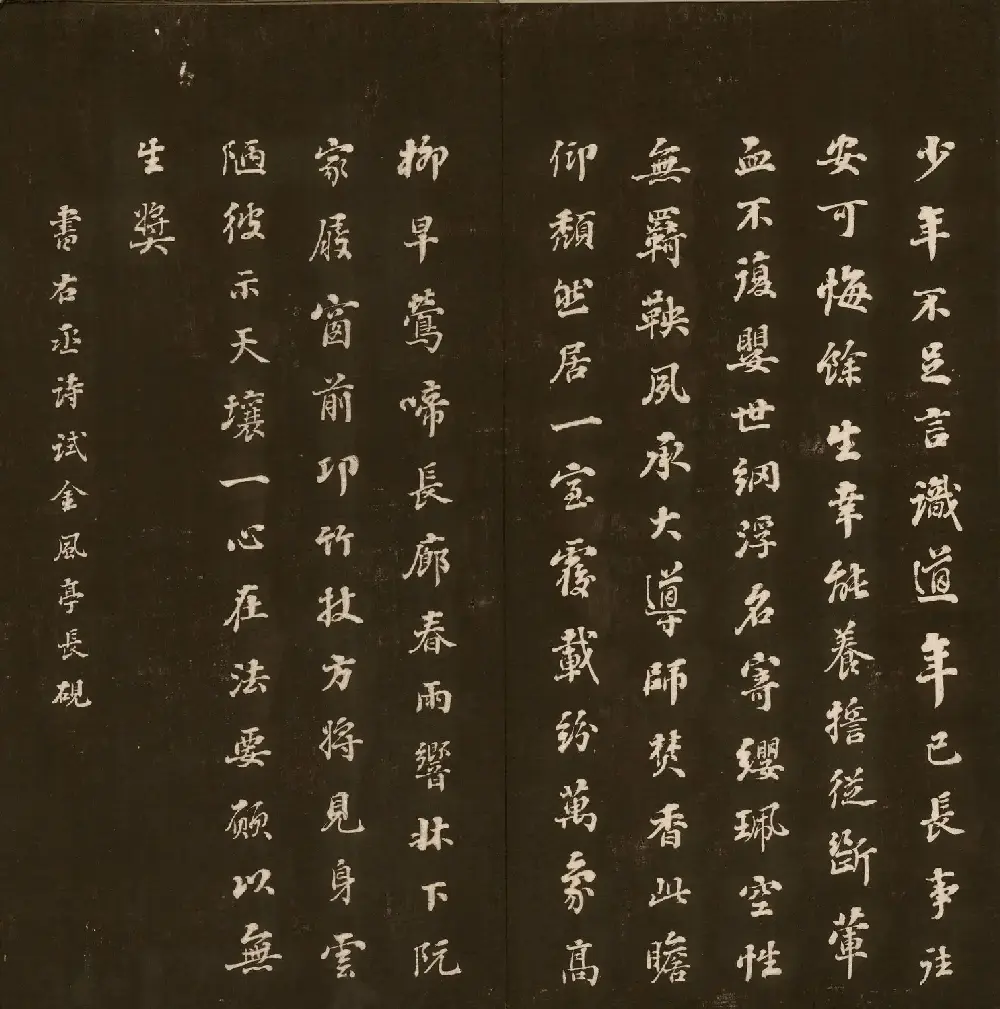 少年不足言識道年已長事往
安可悔餘生幸能養誓從斷葷
血不復嬰世網浮名寄纓珮空性
無羈鞅夙承大導師焚香此瞻
仰頹然居一室覆載紛萬象高
柳早鶯啼長廊春雨響牀下阮
家屐窗前邛竹杖方將見身雲
陋彼示天壤一心在法要願以無
生獎
書右丞诗试金風亭長硯